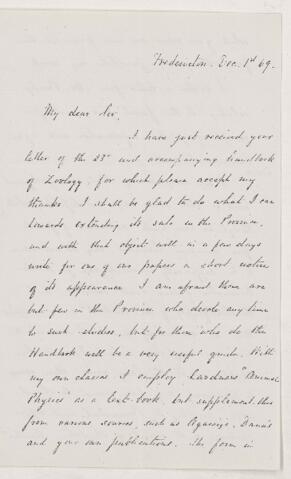 Fredericton. Dec. 1st 69.
My dear Sir.
I have just received your
letter of the 23d and accompanying handbook
of Zoology, for which please accept my
thanks. I shall be glad to do what I can
towards extending its sale in the Province,
and with that object will in a few days
write for one of our papers a short notice
of its appearance. I am afraid there are
but few in the Province who devote any time
to such studies, but for those who do the
Handbook will be a very useful guide. With
my own classes I employ Lardner's "Animal
Physics" as a text-book, but supplement this
from various sources, such as Agassiz's, Dana's
and your own publications. The form in